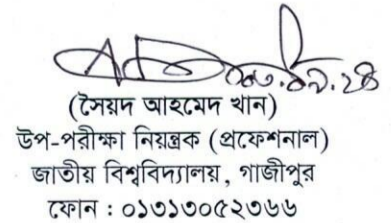 (সৈয়দ আহমেদ খান)
উপ-পরীক্ষা নিয়ন্ত্রক (প্রফেশনাল)
জাতীয় বিশ্ববিদ্যালয়, গাজীপুর
ফোন : ০১৩১৩০৫২৩৬৬